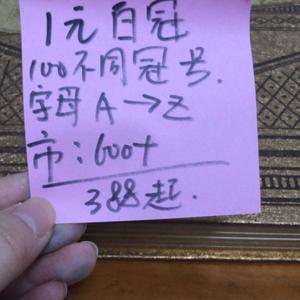 1元百冠
100不同冠号.
字母A→Z
市:600+
388起.